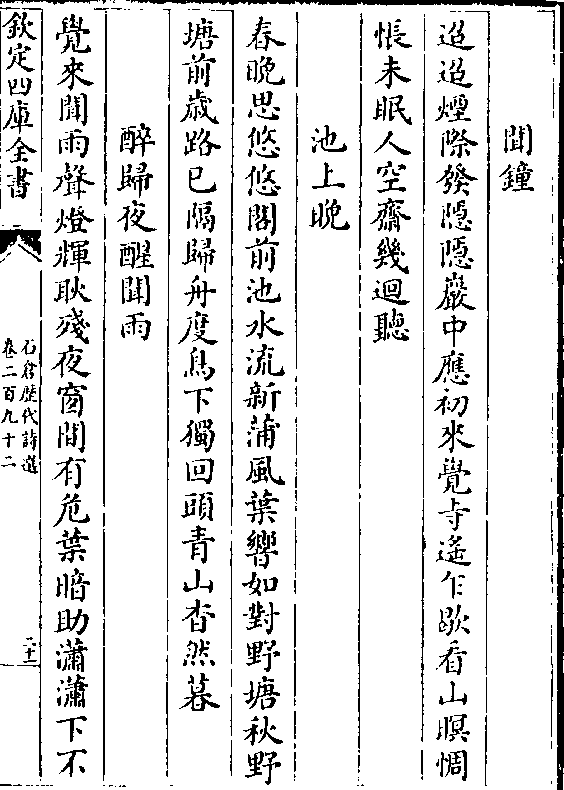 聞鐘
迢迢煙際發隠隠巖中應初來覺寺遙乍歇看山暝惆
悵未眠人空齋幾迴聽
池上晩
春晩思悠悠閣前池水流新蒲風葉響如對野塘秋野
塘前歳路已隔歸舟度鳥下獨回頭青山杳然暮
醉歸夜醒聞雨
覺來聞雨聲燈輝耿殘夜窗間有危葉暗助瀟瀟下不
欽定四庫全書
石倉歴代詩選
卷二百九十二
二十二